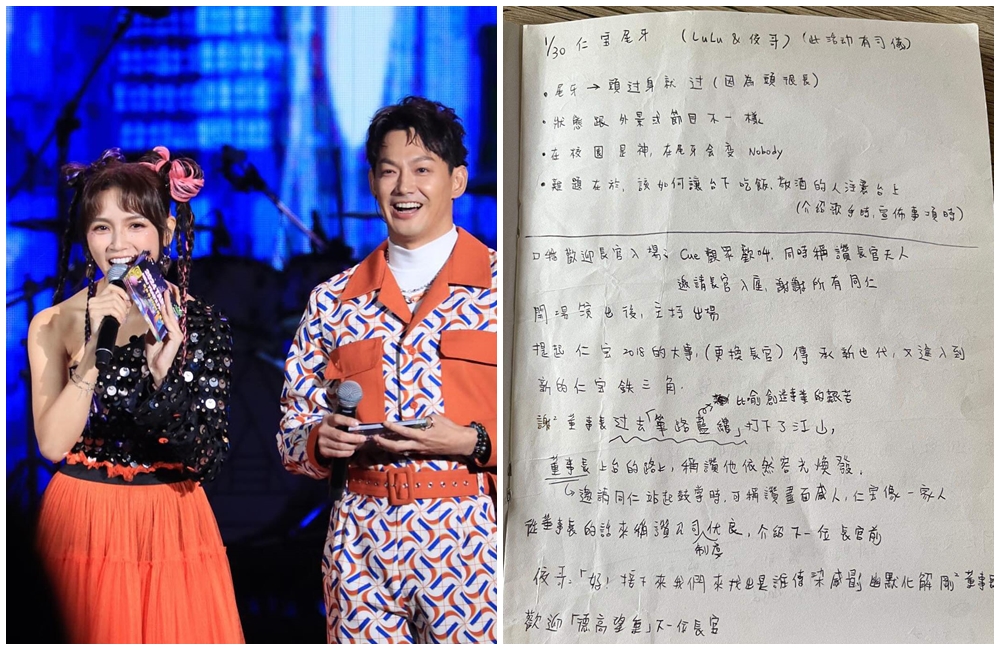 1/30 仁宝尾牙 (LuLu & 侯哥) (此活动有司儀)
• 尾牙 → 頭过身就过 (因為頭很長)
• 狀態跟外景或節目不一樣
• 在校園是神, 在尾牙会变 Nobody
• 難題在於, 該如何讓台下吃飯、敬酒的人注意台上
(介紹歌手時, 宣佈事項時)
口號歡迎長官入場: Cue 觀眾歡呼, 同時稱讚長官夫人
邀請長官入座, 謝謝所有同仁
開場演出後, 主持出場
提起仁宝2018的大事, (更換長官) 傳承新世代, 又進入到
新的仁宝鉄三角.
比喻創造事業的艱苦
謝²董事長过去「篳路藍縷」打下了江山,
董事長上台的路上, 稱讚他依然容光煥發.
↳ 邀請同仁站起鼓掌時, 可稱讚畫面感人, 仁宝像一家人
從董事長的話來稱讚公司優良, 介紹下一位長官前
制度
侯哥:「好! 接下來我們來找出是誰傳染感冒」幽默化解剛²董事長
歡迎「德高望重」下一位長官